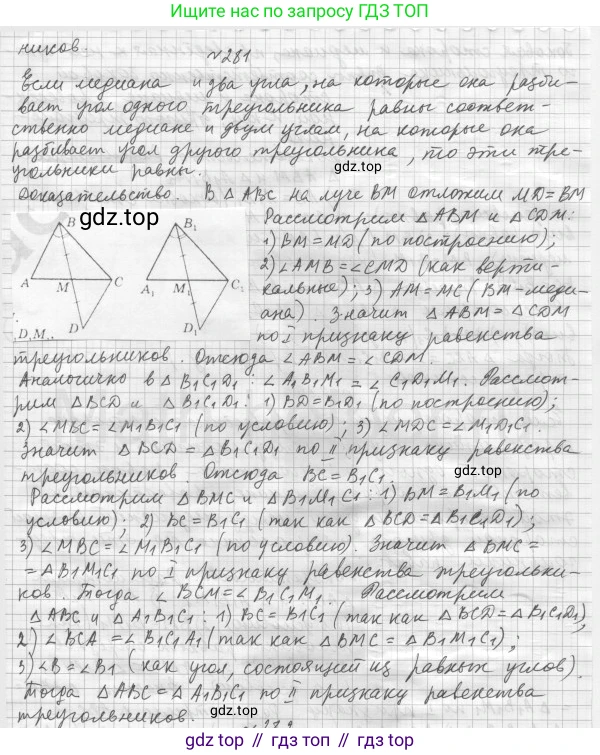 Ищите нас по запросу ГДЗ ТОП
ников.
№281
Если медиана и два угла, на которые она разби-
вает угол одного треугольника равны соответ-
ственно медиане и двум углам, на которые она
разбивает угол другого треугольника, то эти тре-
угольники равны.
gdz.top
Доказательство. В △ABC на луче BM отложим MD=BM
gdz.top
Рассмотрим △ABM и △CDM:
1) BM=MD (по построению);
2) ∠AMB=∠CMD (как верти-
кальные); 3) AM=MC (BM-меди-
ана). Значит △ABM=△CDM
по I признаку равенства
B
B₁
A
M
C
A₁
M₁
C₁
D
D₁
D,M,.
треугольников. Отсюда ∠ABM=∠CDM.
Аналогично в △B₁C₁D₁: ∠A₁B₁M₁=∠C₁D₁M₁. Рассмот-
рим △BCD и △B₁C₁D₁: 1) BD=B₁D₁ (по построению);
2) ∠MBC=∠M₁B₁C₁ (по условию); 3) ∠MDC=∠M₁D₁C₁.
Значит △BCD=△B₁C₁D₁ по II признаку равенства
треугольников. Отсюда BC=B₁C₁.
gdz.top
Рассмотрим △BMC и △B₁M₁C₁: 1) BM=B₁M₁ (по
условию); 2) BC=B₁C₁ (так как △BCD=△B₁C₁D₁);
3) ∠MBC=∠M₁B₁C₁ (по условию). Значит △BMC=
=△B₁M₁C₁ по I признаку равенства треугольни-
ков. Тогда ∠BCM=∠B₁C₁M₁. Рассмотрим
△ABC и △A₁B₁C₁: 1) BC=B₁C₁ (так как △BCD=△B₁C₁D₁),
2) ∠BCA=∠B₁C₁A₁ (так как △BMC=△B₁M₁C₁);
3) ∠B=∠B₁ (как угол, состоящий из равных углов).
Тогда △ABC=△A₁B₁C₁ по II признаку равенства
треугольников.
gdz.top // gdz.top // gdz.top